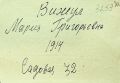 Вижул
Мария Григорьевна
1914
Садовая 32